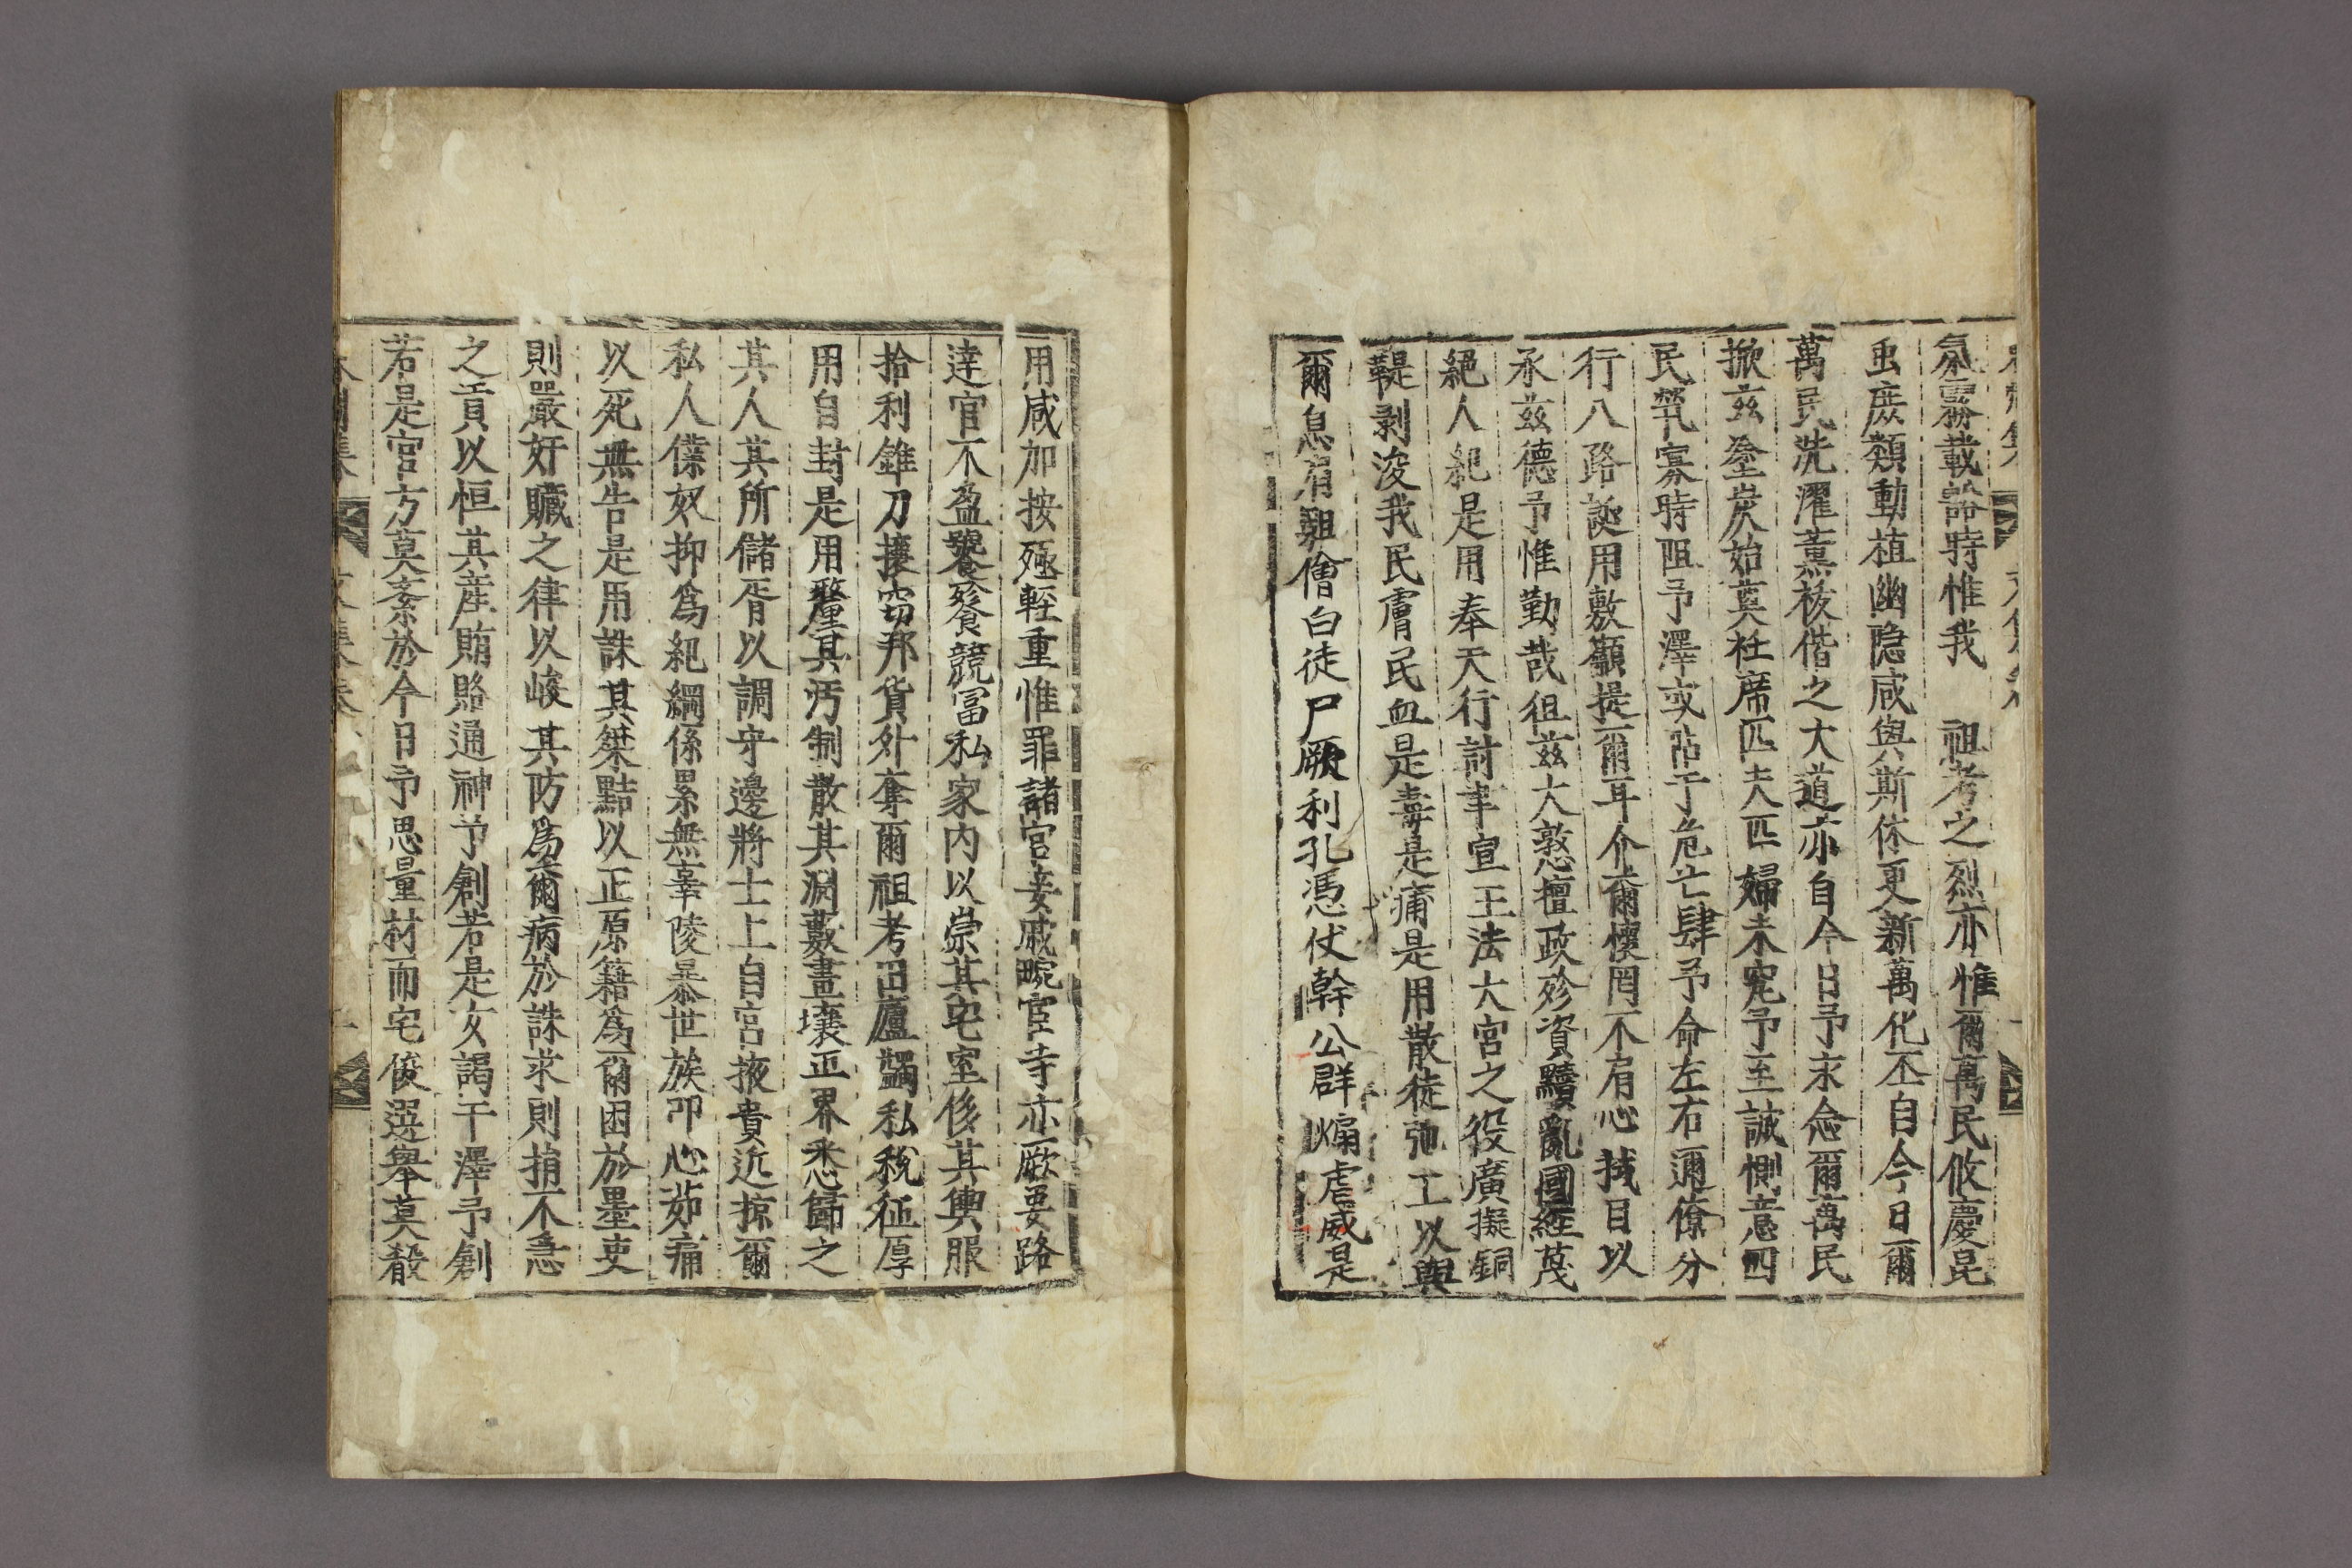 氛霧載豁時惟我　祖考之烈亦惟爾萬民攸慶昆
虫庶類動植幽隐咸與斯休更新萬化丕自今日爾
萬民洗濯薰祓偕之大道亦自今日予永念爾萬民
掀玆塗炭始奠衽席匹夫匹婦未寃予至誠惻意四
民煢寡時阻予澤或阽于危亡肆予命左右邇僚分
行八路誕用敷籲提爾耳介爾懷罔不肩心拭目以
承玆德予惟勤哉徂玆大憝擅政殄資黷亂國經蔑
絕人紀是用奉天行討聿宣王法大宮之役廣擬銅
鞮剥浚我民膚民血是毒是痡是用散徒弛工以與
爾息肩駔儈白徒尸厥利孔憑仗幹公群煽虐威是
用咸加按殛輕重惟罪諸宮妾戚畹宦寺亦厥要路
逹官不盈饕飱競冨私家内以崇其宅室侈其輿服
拾利錐刀攘窃邦貨外奪爾祖考田廬蠲私稅征厚
用自封是用釐其汚制散其淵藪畫壤正界悉歸之
其人其所儲胥以調守邊將士上自宮掖貴近掠爾
私人僕奴抑爲紀綱係累無辜陵暴世族卭心茹痛
以死無告是用誅其桀黠以正原籍爲爾困於墨吏
則嚴奸贓之律以峻其防爲爾病於誅求則捐不急
之貢以恒其産賄賂通神予創若是女謁干澤予創
若是宮方莫紊於今日予思量材而宅俊選舉莫殽